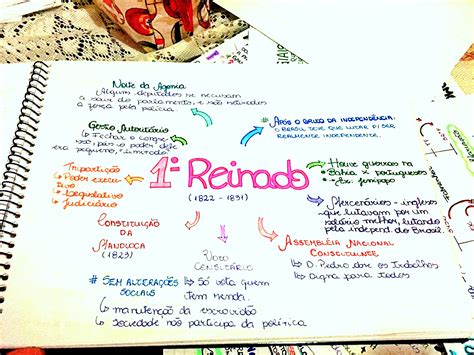 Noite da Agonia
Alguns deputados se recusam
a sair do parlamento, e são retirados
à força pela polícia.
# Após o grito da independência:
o Brasil teve que lutar p/ ser
realmente independente.
Gestão Autoritário
↳ Fechar o congre-
sso, pois o poder dele
era pequeno, e limitado?
1º Reinado
(1822 - 1831)
Houve guerras na
Bahia x portugueses
↳ Ex: Jenipapo
Tripartição
↳ Poder execu-
tivo
↳ Legislativo
↳ Judiciário
Mercenários - ingleses
que lutavam por um
salário melhor, lutando
pela independ. do Brasil.
Constituição
da
Mandioca
(1823)
Voto
Censitário
↳ Só vota quem
tem renda.
Assembléia Nacional
Constituinte
↳ D. Pedro abre os trabalhos
↳ Digna para todos
# Sem alterações
sociais
↳ manutenção da escravidão
↳ sociedade não participa da política